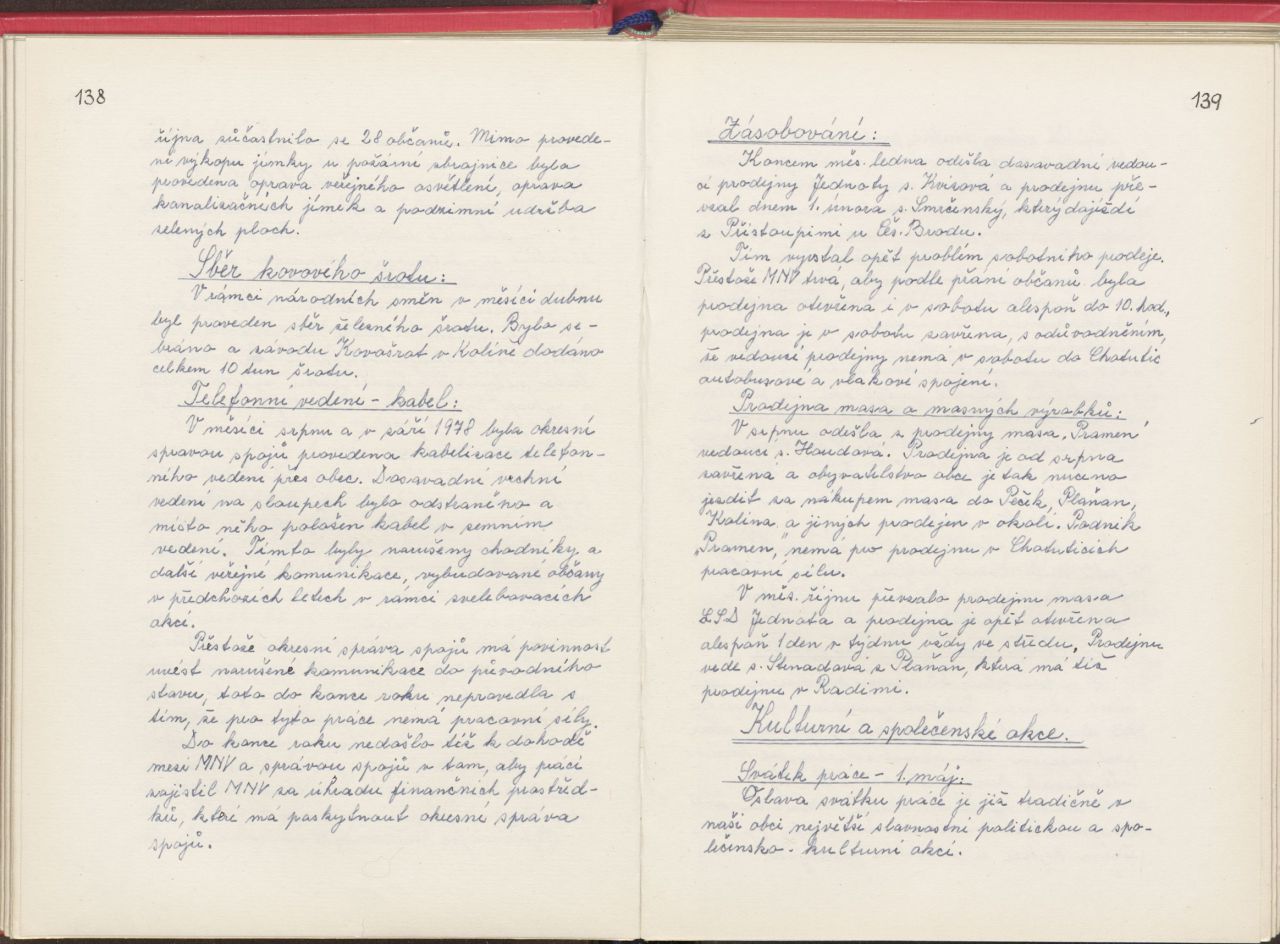 138
října zúčastnilo se 28 občanů. Mimo provede-
ní výkopu jímky u požární zbrojnice byla
provedena oprava veřejného osvětlení, oprava
kanalizačních jímek a podzimní údržba
zelených ploch.
Sběr kovového šrotu:
V rámci národních směn v měsíci dubnu
byl proveden sběr železného šrotu. Bylo se-
bráno a závodu Kovošrot v Kolíně dodáno
celkem 10 tun šrotu.
Telefonní vedení - kabel:
V měsíci srpnu a v září 1978 byla okresní
správou spojů provedena kabelizace telefon-
ního vedení přes obec. Dosavadní vrchní
vedení na sloupech bylo odstraněno a
místo něho položen kabel v zemním
vedení. Tímto byly narušeny chodníky a
další veřejné komunikace, vybudované občany
v předchozích letech v rámci zvelebovacích
akcí.
Přestože okresní správa spojů má povinnost
uvést narušené komunikace do původního
stavu, toto do konce roku neprovedla s
tím, že pro tyto práce nemá pracovní síly.
Do konce roku nedošlo též k dohodě
mezi MNV a správou spojů v tom, aby práci
zajistil MNV za úhradu finančních prostřed-
ků, které má poskytnout okresní správa
spojů.
139
Zásobování:
Koncem měs. ledna odešla dosavadní vedou-
cí prodejny Jednoty s. Kvízová a prodejnu pře-
vzal dnem 1. února s. Smrčenský, který dojíždí
z Přistoupimi u Čes. Brodu.
Tím vyvstal opět problém sobotního prodeje.
Přestože MNV trvá, aby podle přání občanů byla
prodejna otevřena i v sobotu alespoň do 10. hod.,
prodejna je v sobotu zavřena, s odůvodněním,
že vedoucí prodejny nemá v sobotu do Chotutic
autobusové a vlakové spojení.
Prodejna masa a masných výrobků:
V srpnu odešla z prodejny masa „Pramen"
vedoucí s. Houdová. Prodejna je od srpna
zavřená a obyvatelstvo obce je tak nuceno
jezdit za nákupem masa do Peček, Plaňan,
Kolína a jiných prodejen v okolí. Podnik
„Pramen„ nemá pro prodejnu v Chotuticích
pracovní sílu.
V měs. říjnu převzala prodejnu masa
LSD Jednota a prodejna je opět otevřena
alespoň 1 den v týdnu vždy ve středu. Prodejnu
vede s. z Plaňan, která má též
prodejnu v Radimi.
Kulturní a společenské akce.
Svátek práce - 1. máj:
Oslava svátku práce je již tradičně v
naší obci největší slavnostní politickou a spo-
lečensko-kulturní akcí.